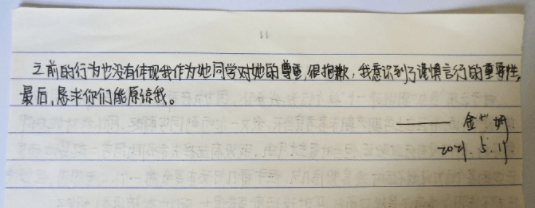 11
之前的行为也没有体现我作为她同学对她的尊重,很抱歉,我意识到了谨慎言行的重要性,
最后,恳求你们能原谅我。
—— 金
2021.5.11